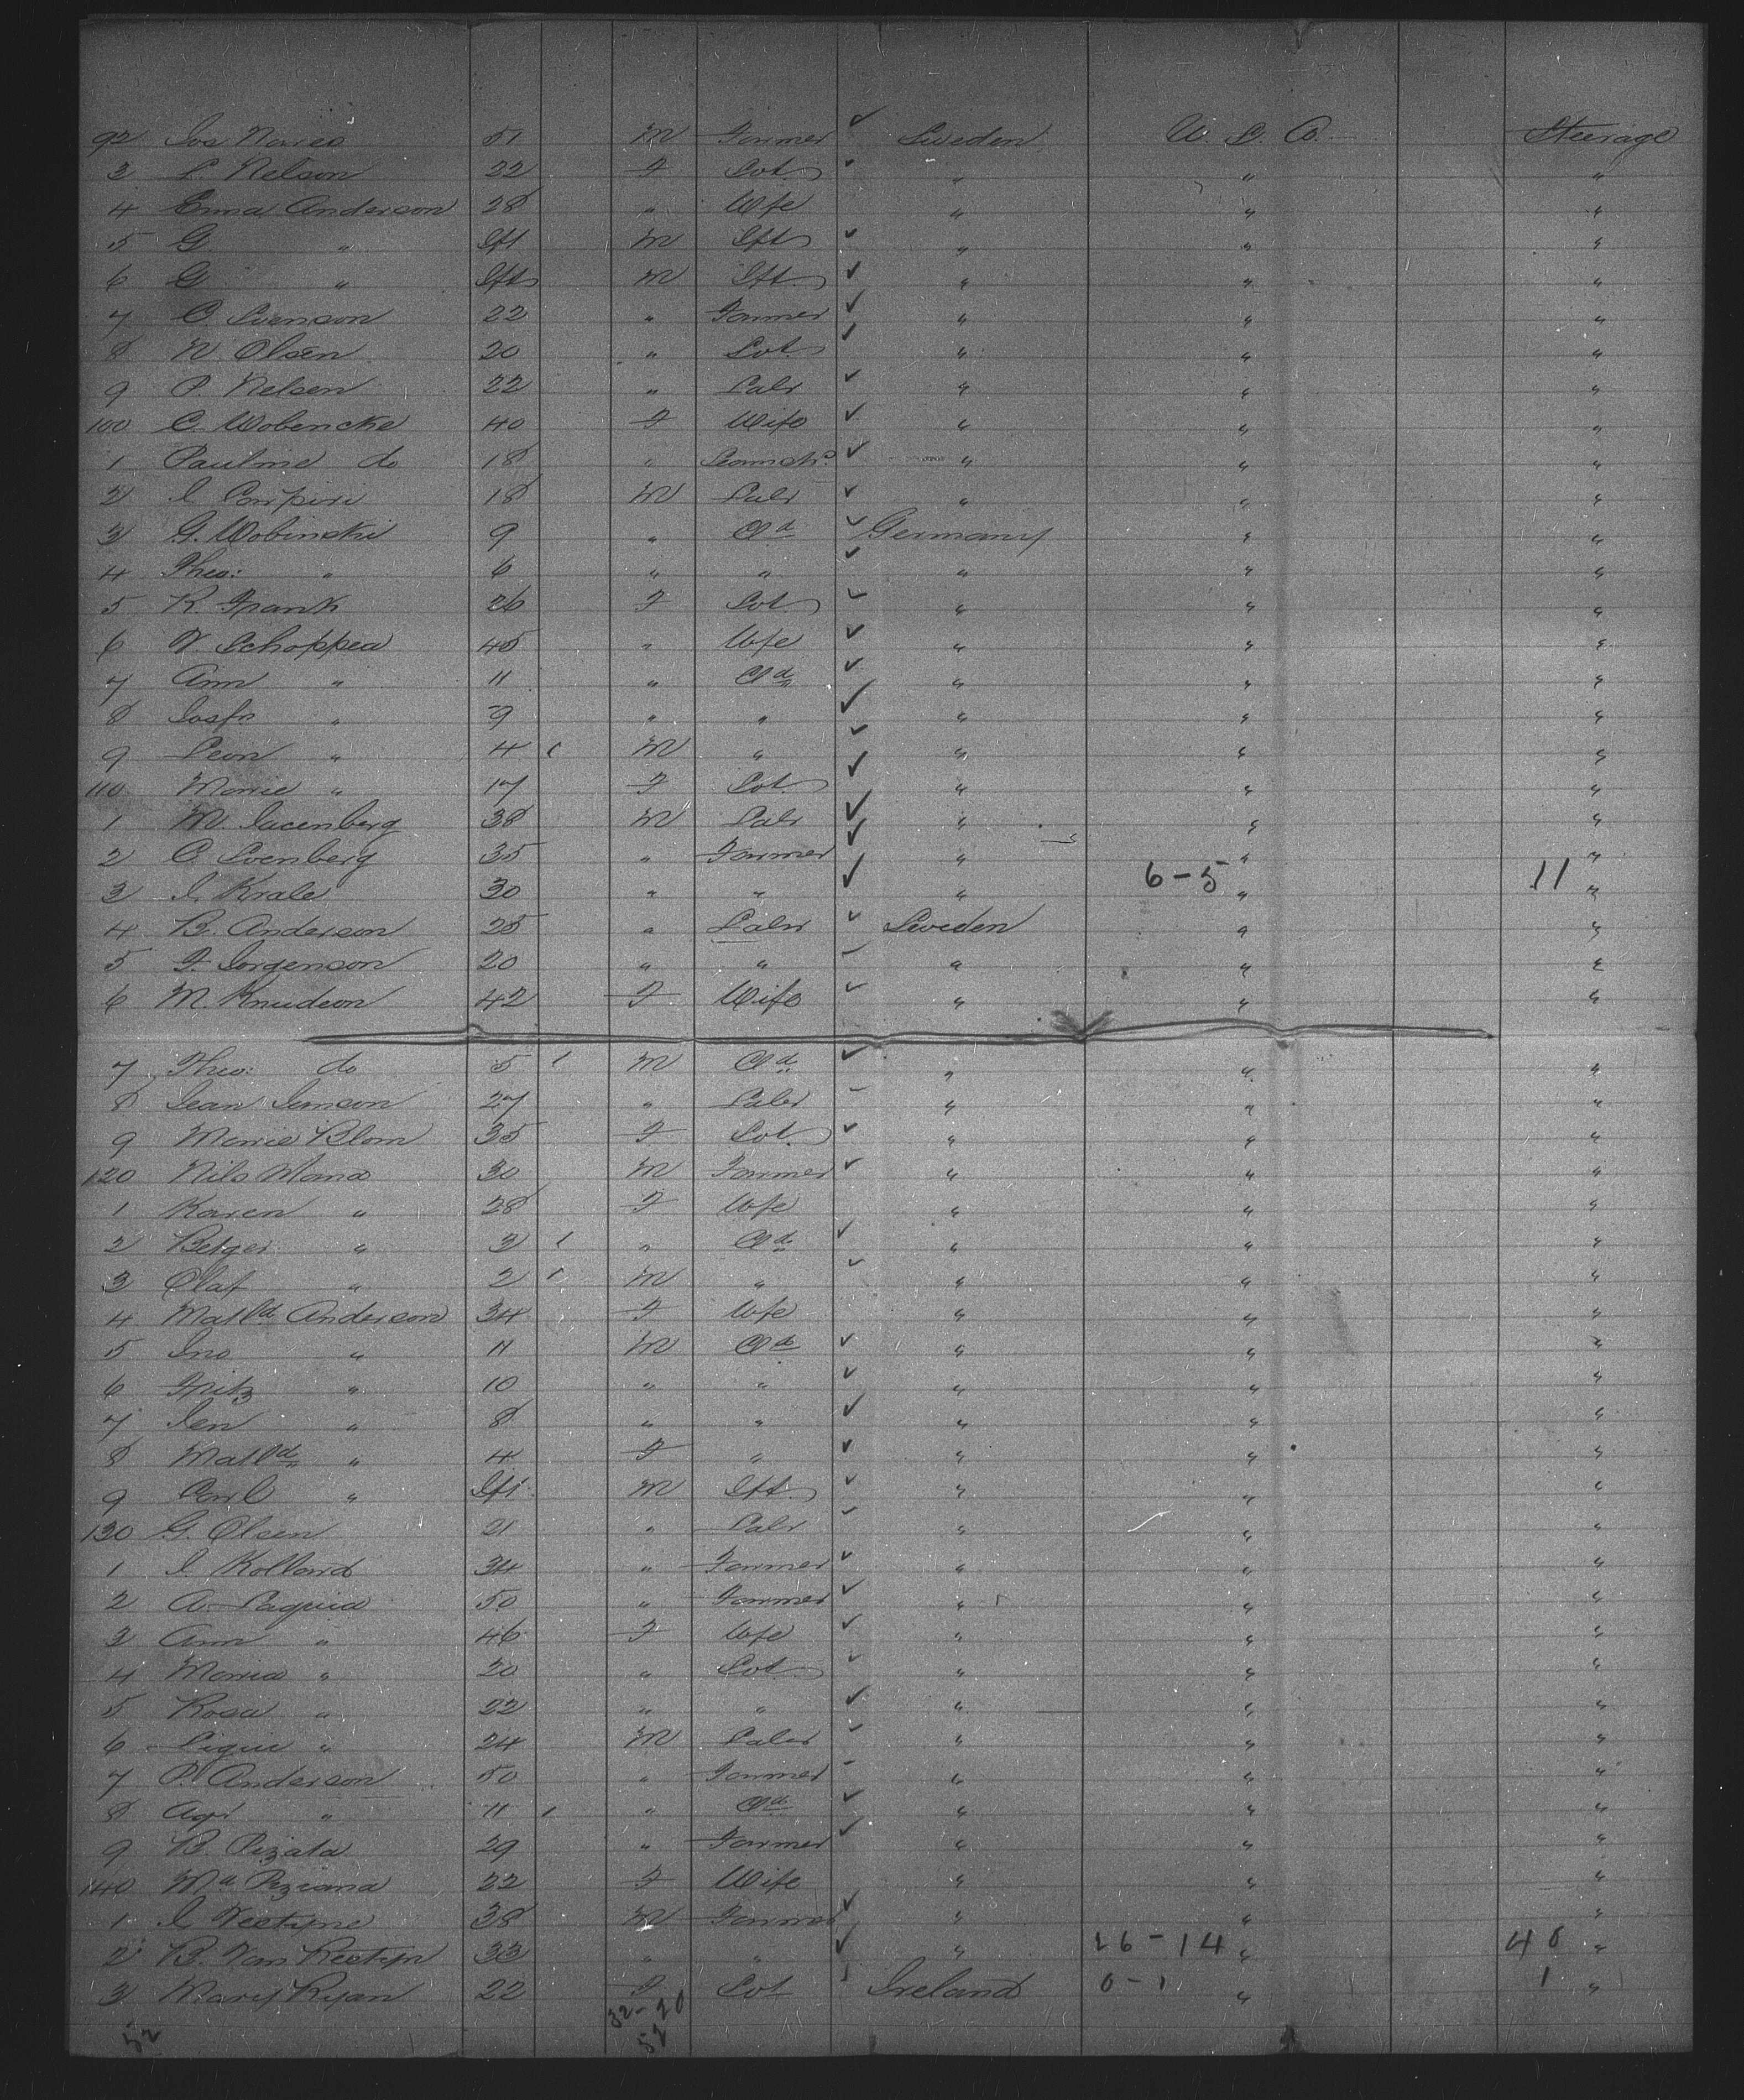 92 Jos Nares 51 M Farmer ✓ Sweden U. S. A. Steerage
3 P. Nelson 22 F Spt. ✓ " " "
4 Emma Anderson 28 " Wfe " " "
5 G " Ift M Ift ✓ " " "
6 G " Ift M Ift. ✓ " " "
7 O. Svenson 22 " Farmer ✓ " " "
8 N. Olsen 20 " Spt. ✓ " " "
9 P. Nelsen 22 " Labr ✓ " " "
100 C. Wobencke 40 F Wife ✓ " " "
1 Pauline do 18 " ✓ " " "
2 18 M Labr ✓ " " "
3 G. Wobinski 9 " Cld ✓ Germany " "
4 Theo: " 6 " " ✓ " " "
5 K. Frank 26 F Spt. ✓ " " "
6 V. Schoppea 45 " Wfe ✓ " " "
7 Ann " 11 " Cld ✓ " " "
8 Josfn " 9 " " ✓ " " "
9 Leon " 4 M " ✓ " " "
110 Marie " 17 F Spt ✓ " " "
1 M. Sacenberg 38 M Labr ✓ " " "
2 O. Svenberg 35 " Farmer ✓ " " "
3 J. Krale 30 " " ✓ " 6-5 " 11 "
4 B. Anderson 25 " Labr ✓ Sweden " "
5 F. Jorgenson 20 " " " " "
6 M. Knudson 42 F Wife ✓ " " "
7 Theo: do 5 M Cld ✓ " " "
8 Jean Jonson 27 " Labr " " "
9 Marie Blom 35 F Spt. ✓ " " "
120 Nils Mans 30 M Farmer ✓ " " "
1 Karen " 28 F Wfe " " "
2 Betger " 3 " Cld ✓ " " "
3 Olaf " 2 M " ✓ " " "
4 Matld Anderson 34 F Wfe " " "
5 Jno " 11 M Cld ✓ " " "
6 Fritz " 10 " " ✓ " " "
7 Jen " 8 " " ✓ " " "
8 Matld " 4 F " ✓ " " "
9 Carl " Ift M Ift. ✓ " " "
130 G. Olsen 21 " Labr ✓ " " "
1 J. Kolland 34 " Farmer ✓ " " "
2 A. Laquia 50 " Farmer ✓ " " "
3 Ann " 46 F Wfe ✓ " " "
4 Maria " 20 " Spt ✓ " " "
5 Rosa " 22 " " ✓ " " "
6 " 24 M Labr ✓ " " "
7 P. Anderson 50 " Farmer " " "
8 Agr " 11 " Cld ✓ " " "
9 B. Pizata 29 " Farmer ✓ " " "
140 Ma Peziana 22 F Wife " " "
1 38 M Farmer ✓ " " "
2 B. Van 33 " " ✓ " 26-14 " 40 "
3 Mary Ryan 22 F Spt Ireland 0-1 " 1 "
32-20
52 52